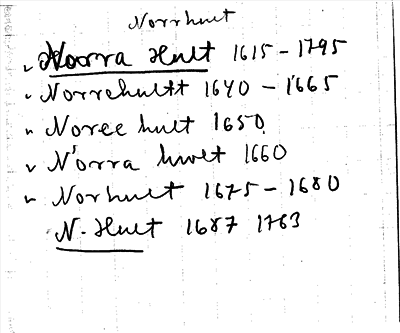 Norrhult
Norra Hult 1615 - 1795
Norrehultt 1640 - 1665
Noree hult 1650
Norra hwlt 1660
Norhult 1675 - 1680
N. Hult 1687 1763